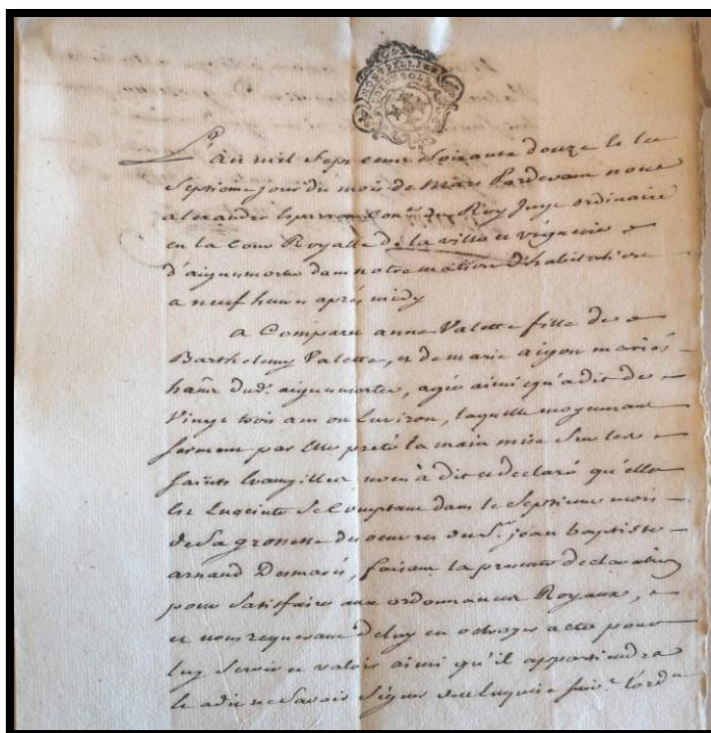 MONTPELLIER
L'an mil sept cens soixante douze le
septieme jour du mois de mars Pardevant nous
alexandre Esparron Con.er du Roy Juge ordinaire
en la Cour Royalle de la ville et viguerie
d'aiguesmortes dans notre maison d'habitation
a neuf heures après midy
a Comparu anne Valette fille de
Barthelemy Valette, et de marie aigon mariés
hañs dud. aiguesmortes, agée ainsi qu'a dit de
Vingt trois ans ou Environ, laquelle moyennant
serment par Elle preté la main mise sur les
saints Evangilles nous à dit et declaré qu'elle
Est Enceinte Se Comptant dans le Septieme mois
de Sa grossesse des oeuvres du S.r jean baptiste
arnaud Desmarés, faisant la presente declaration
pour Satisfaire aux ordonnances Royaux,
et nous requerant de luy en octroyer acte pour
luy Servir et valoir ainsi qu'il appartiendra
le a dit ne Savoir Signer de ce Enquise suiv.t l'ord.e